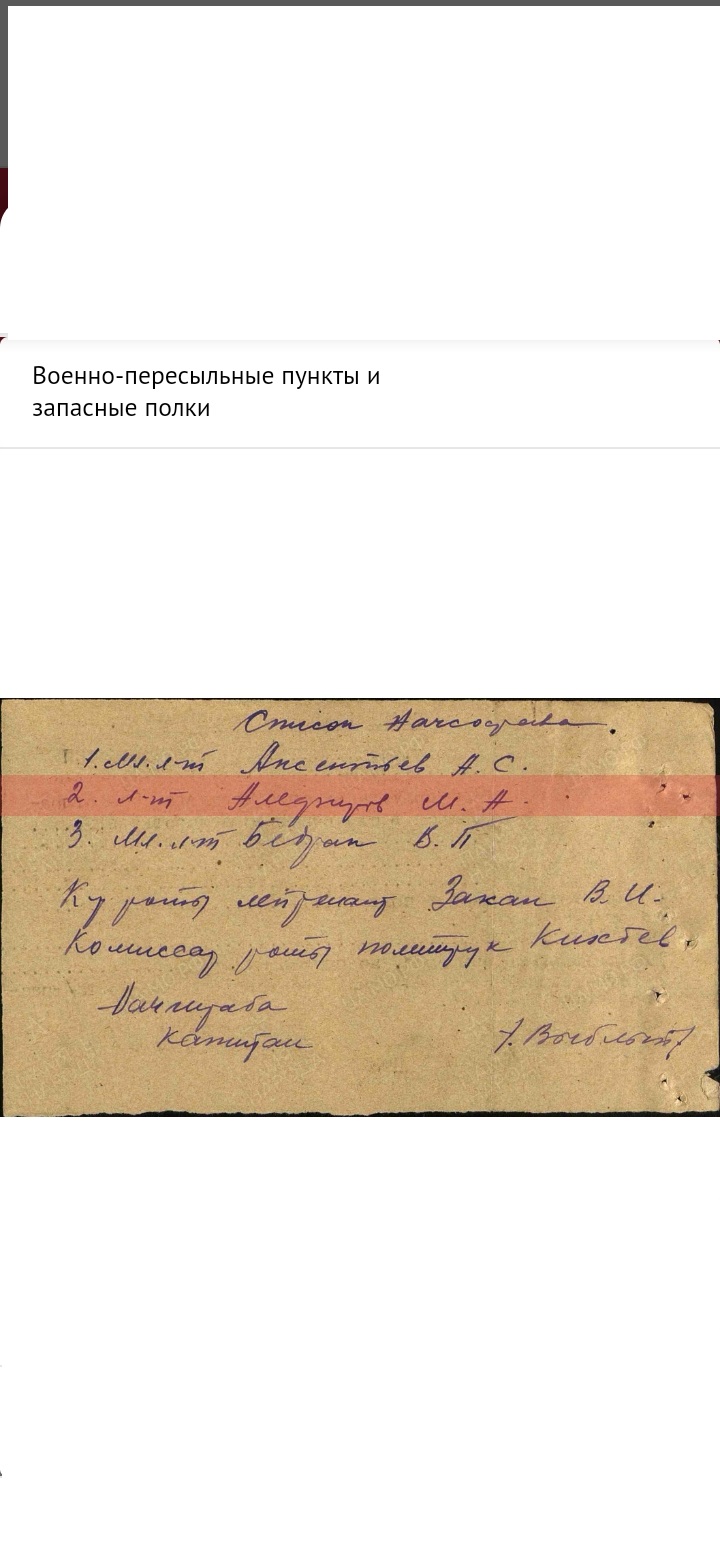 Военно-пересыльные пункты и
запасные полки
Список Начсостава.
1. Мл. л-т Аксентьев А. С.
2. л-т М. А.
3. Мл. л-т В. П
К-р роты лейтенант Закан В. И.
Комиссар роты политрук
Начштаба
капитан